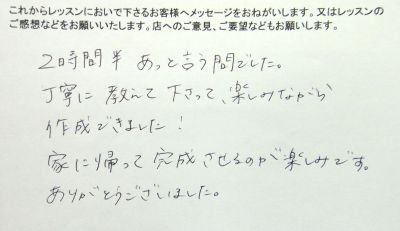 これからレッスンにおいで下さるお客様へメッセージをおねがいします。又はレッスンの
ご感想などをお願いいたします。店へのご意見、ご要望などもお願いします。
2時間半 あっと言う間でした。
丁寧に 教えて 下さって、楽しみながら
作成できました！
家に帰って 完成 させるのが 楽しみです。
ありがとうございました。